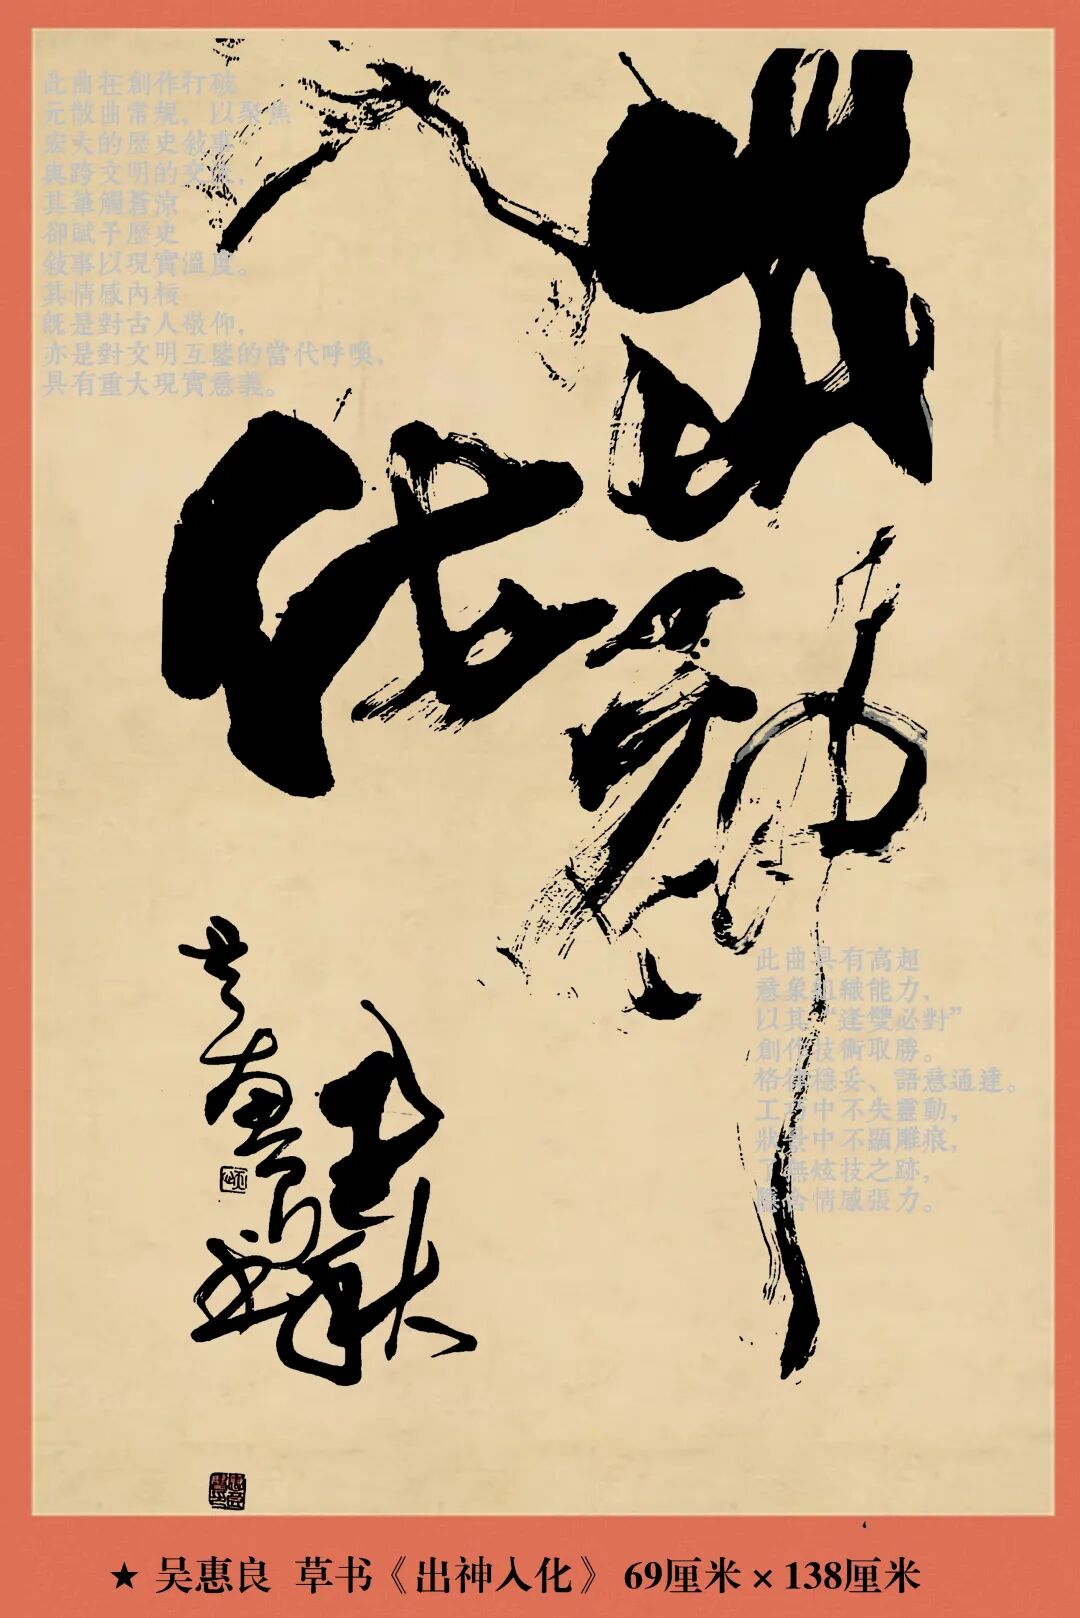 出神
入化
此曲在創作打破
元散曲常規，以聚焦
宏大的歷史敍事
與跨文明的交流，
其筆觸蒼涼
卻賦予歷史
敍事以現實溫度。
其情感內核
既是對古人敬仰，
亦是對文明互鑒的當代呼喚，
具有重大現實意義。
此曲具有高超
意象組織能力，
以其“逢雙必對”
創作技術取勝。
格律穩妥、語意通達。
工巧中不失靈動，
狀景中不顯雕痕，
了無炫技之跡，
吳惠良書
★ 吴惠良 草书《出神入化》 69厘米×138厘米